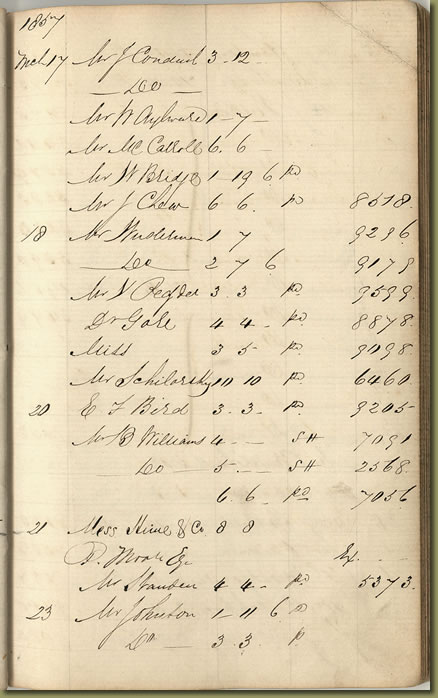 1857
Mch 17 Mr J Conduit 3 - 12 -
— Do —
Mr W Aylward 1 - 7 -
Mr Mc Carroll 6. 6 -
Mr W Bridge 1 - 19 6 pd
Mr J Chew 6 6. pd
18 Mr 1 7 9296
— Do 2 7 6 9179
Mr 3. 3 pd 9599
Dr Gale 4 4 - pd 8878
Miss 3 5 - pd 9098
Mr 10 10 pd 6460
20 E F Bird 3 - 3 - pd 9205
Mr B Williams 4 - - SH 7091
Do — 5. — SH 2568
6. 6 - pd 7056
21 Mess Hime & Co 8 8
Ex.
Mr 4 4 - pd 5373.
23 Mr Johnston 1 - 11 6
Do — 3. 3